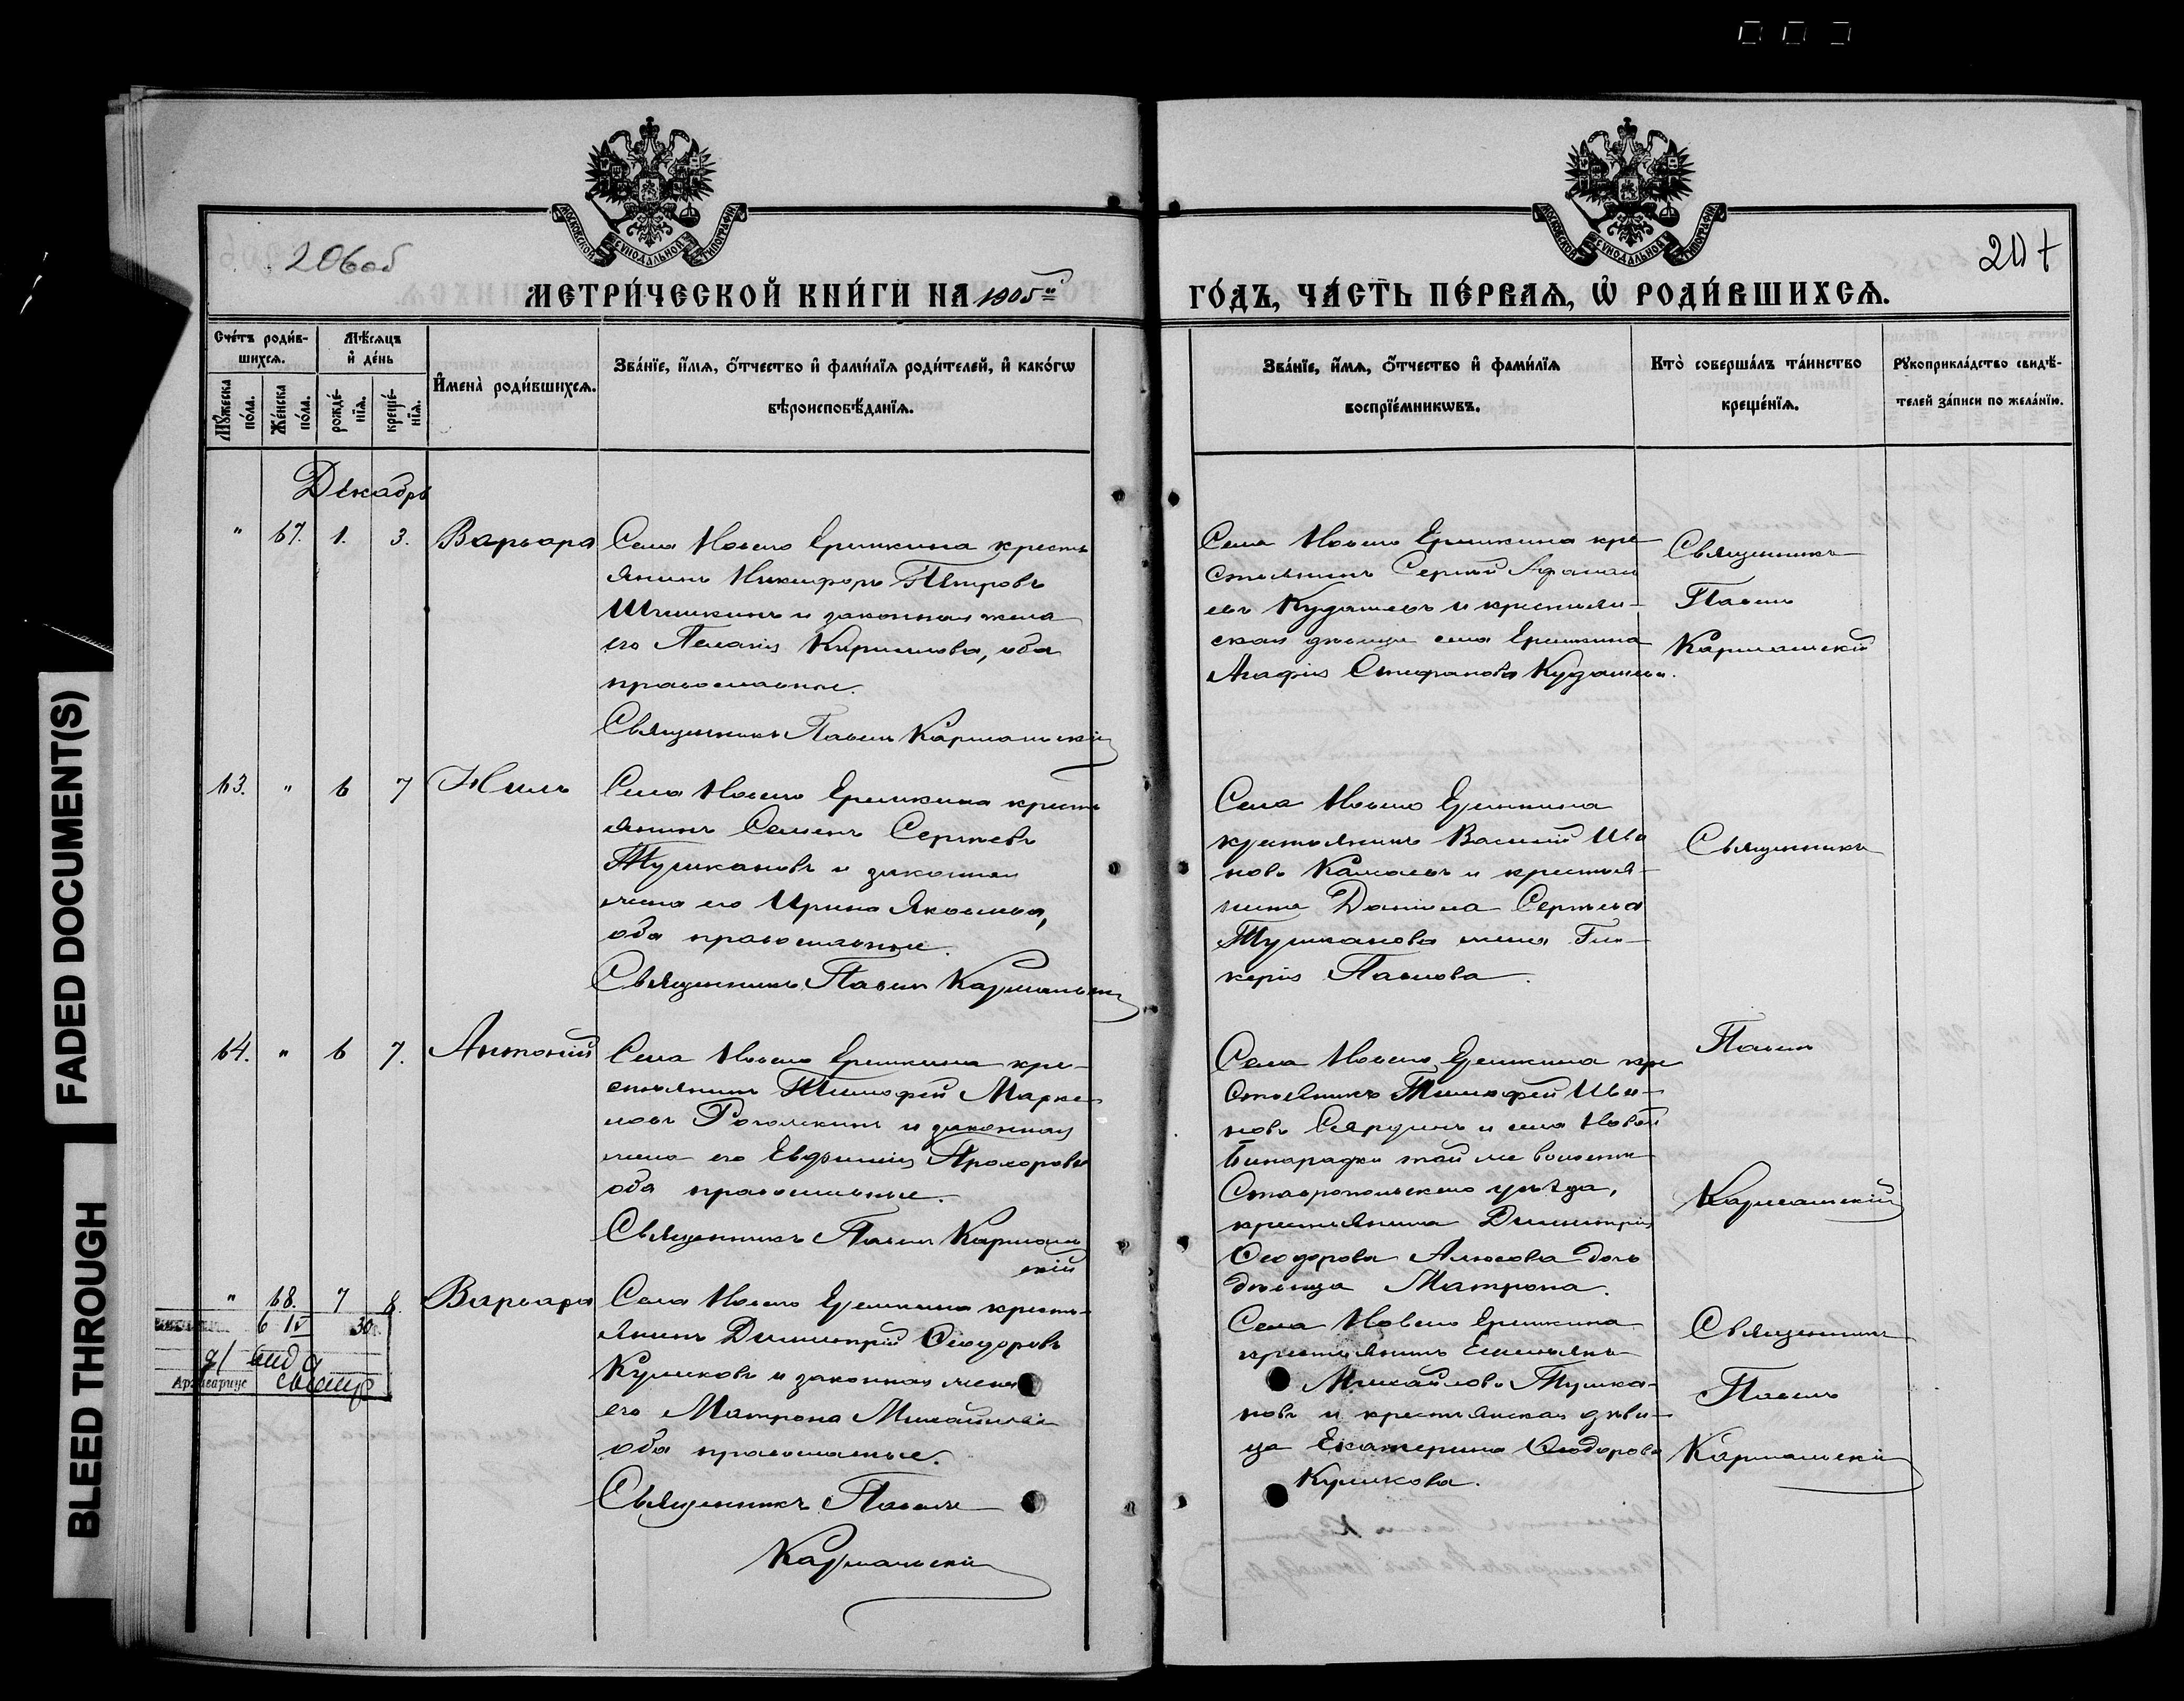 FADED DOCUMENT(S)
BLEED THROUGH
206об
207
МОСКОВСКОЙ СѴНОДАЛЬНОЙ ТИПОГРАФІИ
МОСКОВСКОЙ СѴНОДАЛЬНОЙ ТИПОГРАФІИ
МЕТРИ́ЧЕСКОЙ КНИ́ГИ НА 1905й
ГО́ДЪ, ЧА́СТЬ ПЕ́РВАѦ, Ѡ РОДИ́ВШИХСѦ.
Сче́тъ роди́в-
шихсѧ.
Мѣ́сѧцъ
и҆ де́нь
Мꙋ́жеска по́ла.
Же́нска по́ла.
рожде́-
нїѧ.
креще́-
нїѧ.
И҆мена̀ роди́вшихсѧ.
Зва́нїе, и҆́мѧ, ѻ҆́тчество и҆ фами́лїѧ роди́телей, и҆ како́гѡ
вѣроисповѣ́данїѧ.
Зва́нїе, и҆́мѧ, ѻ҆́тчество и҆ фами́лїѧ
воспрїе́мникѡвъ.
Кто̀ соверша́лъ та́инство
креще́нїѧ.
Рꙋкоприкла́дство свидѣ́-
телей за́писи по жела́нїю.
Декабрь
" 67. 1. 3. Варвара
Села Новаго Еремкина кресть
янинъ Никифоръ Петровъ
Шишкинъ и законная жена
его Пелагія Кирилова, оба
православные.
Священникъ Павелъ Кармальскій
Села Новаго Еремкина кре
стьянинъ Сергѣй Афанась
евъ Кудашевъ и крестьян-
ская дѣвица села Еремкина
Агафія Стефанова Кудашева.
Священникъ
Павелъ
Кармальскій
63. " 6 7 Нилъ
Села Новаго Еремкина кресть
янинъ Семенъ Сергѣевъ
Тушкановъ и законная
жена его Ирина Яковлева,
оба православные.
Священникъ Павелъ Кармальскій
Села Новаго Еремкина
крестьянинъ Василій Ива
новъ Камаевъ и крестья-
нина Даніила Сергѣева
Тушканова жена Гли-
керія Павлова.
Священникъ
64. " 6 7. Антоній
Села Новаго Еремкина кре-
стьянинъ Тимофей Марке-
ловъ и законная
жена его Евфимія Прохорова
оба православные.
Священникъ Павелъ Кармаль
скій
Села Новаго Еремкина кре
стьянинъ Тимофей Ива-
новъ Сярдинъ и села Новой
Бинарадки той же волости
Ставропольскаго уѣзда,
крестьянина Димитрія
Ѳеодорова дочь
дѣвица Матрона.
Павелъ
Кармальскій
" 68. 7 8. Варвара
6 IV 30г.
Села Новаго Еремкина кресть-
янинъ Димитрій Ѳеодоровъ
Куликовъ и законная жена
его Матрона Михайлова
оба православные.
Священникъ Павелъ
Кармальскій
Села Новаго Еремкина
крестьянинъ Емельянъ
Михайловъ Тушка-
новъ и крестьянская дѣви-
ца Екатерина Ѳеодорова
Куликова.
Священникъ
Павелъ
Кармальскій